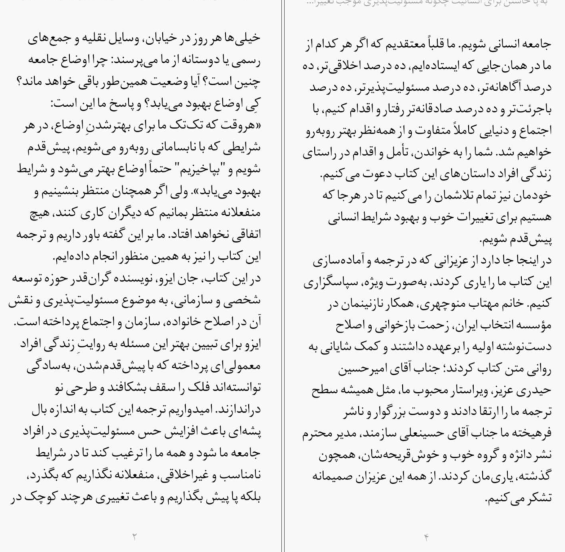 خیلی‌ها هر روز در خیابان، وسایل نقلیه و جمع‌های
رسمی یا دوستانه از ما می‌پرسند: چرا اوضاع جامعه
چنین است؟ آیا وضعیت همین‌طور باقی خواهد ماند؟
کِی اوضاع بهبود می‌یابد؟ و پاسخ ما این است:
«هروقت که تک‌تک ما برای بهترشدنِ اوضاع، در هر
شرایطی که با نابسامانی روبه‌رو می‌شویم، پیش‌قدم
شویم و "بپاخیزیم" حتماً اوضاع بهتر می‌شود و شرایط
بهبود می‌یابد». ولی اگر همچنان منتظر بنشینیم و
منفعلانه منتظر بمانیم که دیگران کاری کنند، هیچ
اتفاقی نخواهد افتاد. ما بر این گفته باور داریم و ترجمه
این کتاب را نیز به همین منظور انجام داده‌ایم.
در این کتاب، جان ایزو، نویسنده گران‌قدر حوزه توسعه
شخصی و سازمانی، به موضوع مسئولیت‌پذیری و نقش
آن در اصلاح خانواده، سازمان و اجتماع پرداخته است.
ایزو برای تبیین بهتر این مسئله به روایتِ زندگی افراد
معمولی‌ای پرداخته که با پیش‌قدم‌شدن، به‌سادگی
توانسته‌اند فلک را سقف بشکافند و طرحی نو
دراندازند. امیدواریم ترجمه این کتاب به اندازه بال
پشه‌ای باعث افزایش حس مسئولیت‌پذیری در افراد
جامعه ما شود و همه ما را ترغیب کند تا در شرایط
نامناسب و غیراخلاقی، منفعلانه نگذاریم که بگذرد،
بلکه پا پیش بگذاریم و باعث تغییری هرچند کوچک در
۲
به پا خاستن برای انسانیت چگونه مسئولیت‌پذیری موجب تغییرا...
جامعه انسانی شویم. ما قلباً معتقدیم که اگر هر کدام از
ما در همان‌جایی که ایستاده‌ایم، ده درصد اخلاقی‌تر، ده
درصد آگاهانه‌تر، ده درصد مسئولیت‌پذیرتر، ده درصد
باجرئت‌تر و ده درصد صادقانه‌تر رفتار و اقدام کنیم، با
اجتماع و دنیایی کاملاً متفاوت و از همه‌نظر بهتر روبه‌رو
خواهیم شد. شما را به خواندن، تأمل و اقدام در راستای
زندگی افراد داستان‌های این کتاب دعوت می‌کنیم.
خودمان نیز تمام تلاشمان را می‌کنیم تا در هرجا که
هستیم برای تغییرات خوب و بهبود شرایط انسانی
پیش‌قدم شویم.
در اینجا جا دارد از عزیزانی که در ترجمه و آماده‌سازی
این کتاب ما را یاری کردند، به‌صورت ویژه، سپاسگزاری
کنیم. خانم مهتاب منوچهری، همکار نازنینمان در
مؤسسه انتخاب ایران، زحمت بازخوانی و اصلاح
دست‌نوشته اولیه را برعهده داشتند و کمک شایانی به
روانی متن کتاب کردند؛ جناب آقای امیرحسین
حیدری عزیز، ویراستار محبوب ما، مثل همیشه سطح
ترجمه ما را ارتقا دادند و دوست بزرگوار و ناشر
فرهیخته ما جناب آقای حسینعلی سازمند، مدیر محترم
نشر دانژه و گروه خوب و خوش‌قریحه‌شان، همچون
گذشته، یاری‌مان کردند. از همه این عزیزان صمیمانه
تشکر می‌کنیم.
۴